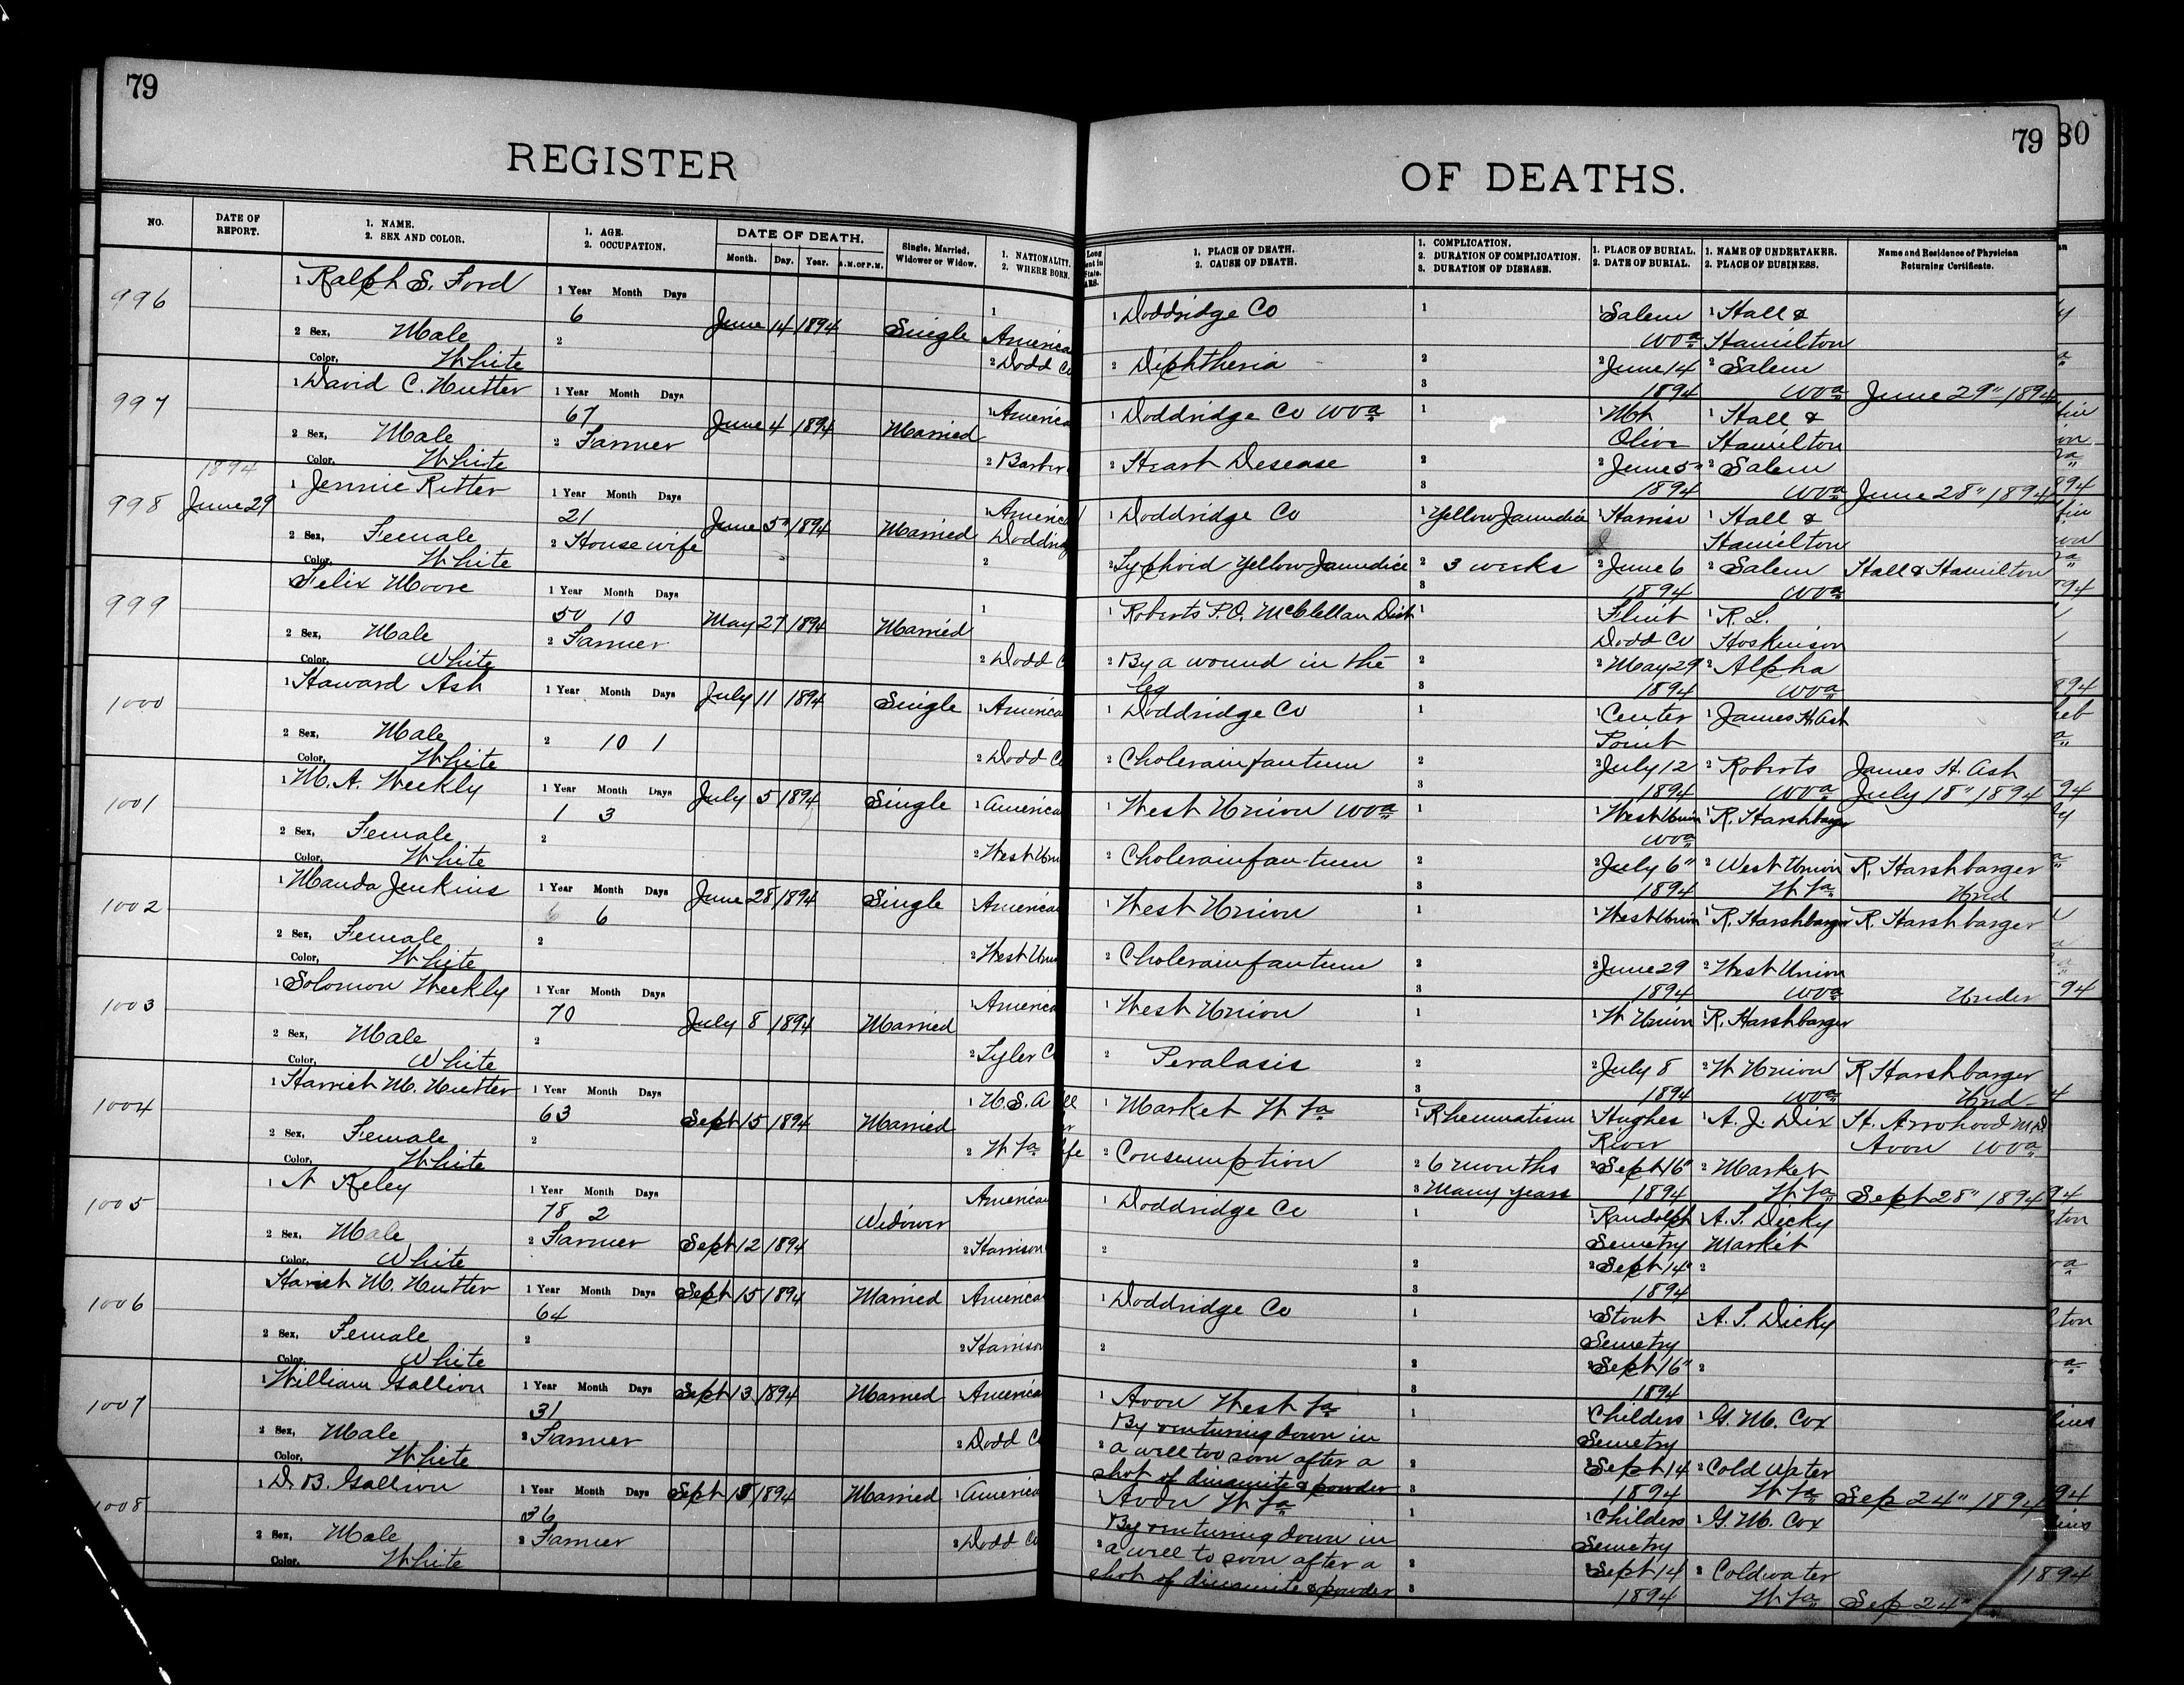 79
REGISTER
OF DEATHS.
79
80
NO.
DATE OF REPORT.
1. NAME.
2. SEX AND COLOR.
1. AGE.
2. OCCUPATION.
DATE OF DEATH.
Month. Day. Year. A.M. OR P.M.
Single, Married, Widower or Widow.
1. NATIONALITY.
2. WHERE BORN.
1. PLACE OF DEATH.
2. CAUSE OF DEATH.
1. COMPLICATION.
2. DURATION OF COMPLICATION.
3. DURATION OF DISEASE.
1. PLACE OF BURIAL.
2. DATE OF BURIAL.
1. NAME OF UNDERTAKER.
2. PLACE OF BUSINESS.
Name and Residence of Physician Returning Certificate.
996
1 Ralph S. Ford
1 Year Month Days
6
2 Sex, Male
Color, White
2
June 14 1894 Single
1 America
2 Dodd Co
1 Doddridge Co
2 Diphtheria
1
2
3
1 Salem
W Va
2 June 14
1894
1 Hall &
Hamilton
2 Salem
W Va
June 29" 1894
997
1 David C. Nutter
1 Year Month Days
67
2 Sex, Male
Color, White
2 Farmer
June 4 1894 Married
1 America
2 Barbr
1 Doddridge Co W Va
2 Heart Desease
1
2
3
1 Mt
Olive
2 June 5"
1894
1 Hall &
Hamilton
2 Salem
W Va
June 28" 1894
998
1894
June 29
1 Jennie Ritter
1 Year Month Days
21
2 Sex, Female
Color, White
2 House wife
June 5" 1894 Married
1 America
Doddridg
2
1 Doddridge Co
2 Typhoid Yellow Jaundice
1 Yellow Jaundice
2 3 weeks
3
1 Harriso
2 June 6
1894
1 Hall &
Hamilton
2 Salem
W Va
Hall & Hamilton
999
Felix Moore
1 Year Month Days
50 10
2 Sex, Male
Color, White
2 Farmer
May 27 1894 Married
1
2 Dodd C
1 Roberts P.O. McClellan Dist
2 By a wound in the
leg
1
2
3
Flint
Dodd Co
2 May 29
1894
1 R. L.
Hoskinson
2 Alpha
W Va
1000
1 Haward Ash
1 Year Month Days
2 Sex, Male
Color, White
2 10 1
July 11 1894 Single
1 America
2 Dodd C
1 Doddridge Co
2 Cholerainfantum
1
2
3
1 Center
Point
2 July 12
1894
1 James H. Ash
2 Roberts
W Va
James H. Ash
July 18" 1894
1001
1 M. A. Weekly
1 Year Month Days
1 3
2 Sex, Female
Color, White
2
July 5 1894 Single
1 America
2 West Uni
1 West Union W Va
2 Cholerainfantum
1
2
3
1 West Union
W Va
2 July 6"
1894
1 R. Harshbarger
2 West Union
W Va
R. Harshbarger
Und
1002
1 Manda Jenkins
1 Year Month Days
6
2 Sex, Female
Color, White
2
June 28 1894 Single
1 America
2 West Uni
1 West Union
2 Cholerainfantum
1
2
3
1 West Union
2 June 29
1894
1 R. Harshbarger
2 West Union
W Va
R. Harshbarger
Under
1003
1 Solomon Weekly
1 Year Month Days
70
2 Sex, Male
Color, White
2
July 8 1894 Married
America
2 Tyler C
1 West Union
2 Peralasis
1
2
3
1 W Union
2 July 8
1894
1 R. Harshbarger
2 W Union
W Va
R Harshbarger
Und
1004
1 Harriet M. Nutter
1 Year Month Days
63
2 Sex, Female
Color, White
2
Sept 15 1894 Married
1 U.S.A
2 W Va
1 Market W Va
2 Consumption
1 Rheumatism
2 6 months
3 Many years
1 Hughes
River
2 Sept 16"
1894
1 A. J. Dix
2 Market
W Va
Avon W Va
Sept 28" 1894
1005
1 N Keley
1 Year Month Days
78 2
2 Sex, Male
Color, White
2 Farmer
Sept 12 1894 Widower
American
2 Harrison
1 Doddridge Co
2
1
2
3
1 Randolph
Semetry
2 Sept 14"
1894
1 A. S. Dicky
Market
2
1006
Hariet M. Nutter
1 Year Month Days
64
2 Sex, Female
Color, White
2
Sept 15 1894 Married
America
2 Harrison
1 Doddridge Co
2
1
2
3
1 Stout
Semetry
2 Sept 16"
1894
1 A. S. Dicky
2
1007
1 William Gallion
1 Year Month Days
31
2 Sex, Male
Color, White
2 Farmer
Sept 13 1894 Married
1 America
2 Dodd C
1 Avon West Va
By venturing down in
2 a well too soon after a
shot of dinamite & powder
1
2
3
1 Childers
Semetry
2 Sept 14
1894
1 G. M. Cox
2 Cold Water
W Va
Sep 24" 1894
1008
1 D. B. Gallion
1 Year Month Days
36
2 Sex, Male
Color, White
2 Farmer
Sept 13 1894 Married
1 America
2 Dodd Co
1 Avon W Va
By venturing down in
2 a well to soon after a
shot of dinamite & powder
1
2
3
1 Childers
Semetry
2 Sept 14
1894
1 G. M. Cox
2 Coldwater
W Va
Sep 24"
1894